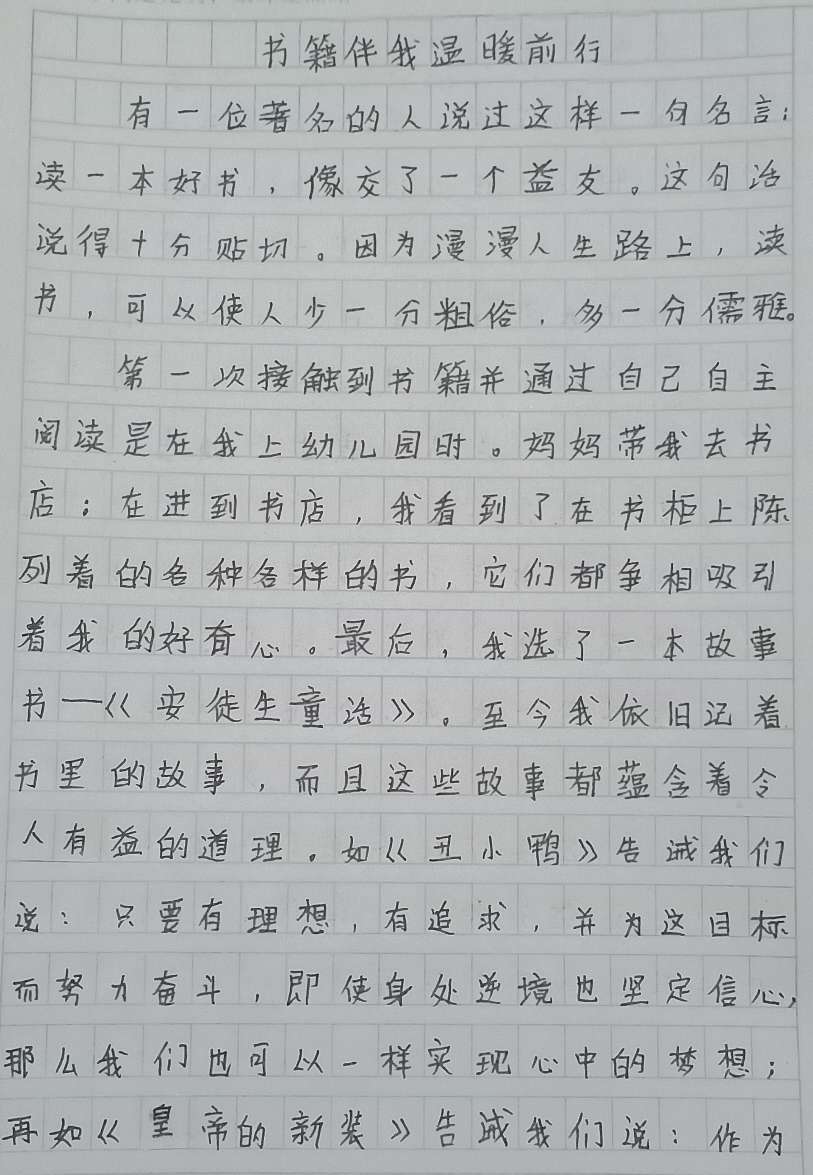 书籍伴我温暖前行
有一位著名的人说过这样一句名言：
读一本好书，像交了一个益友。这句话
说得十分贴切。因为漫漫人生路上，读
书，可以使人少一分粗俗，多一分儒雅。
第一次接触到书籍并通过自己自主
阅读是在我上幼儿园时。妈妈带我去书
店；在进到书店，我看到了在书柜上陈
列着的各种各样的书，它们都争相吸引
着我的好奇心。最后，我选了一本故事
书一《安徒生童话》。至今我依旧记着
书里的故事，而且这些故事都蕴含着令
人有益的道理。如《丑小鸭》告诫我们
说：只要有理想，有追求，并为这目标
而努力奋斗，即使身处逆境也坚定信心，
那么我们也可以一样实现心中的梦想；
再如《皇帝的新装》告诫我们说：作为